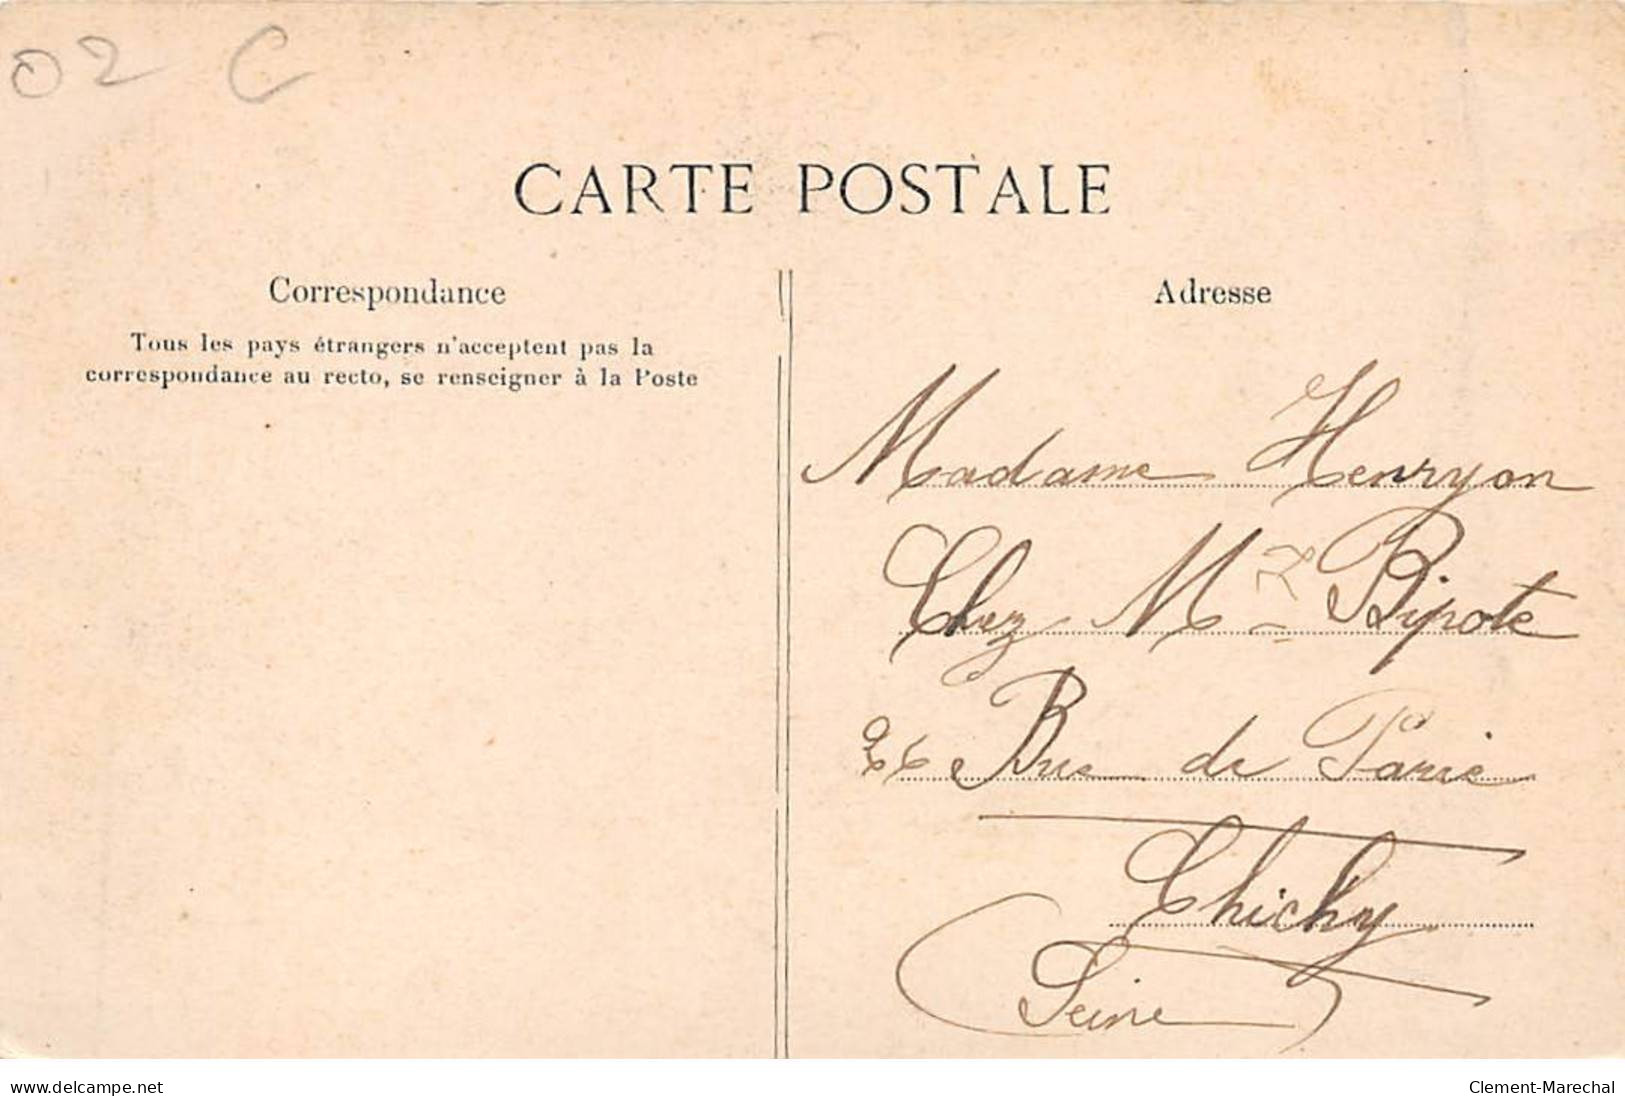 02 C
CARTE POSTALE
Correspondance
Tous les pays étrangers n'acceptent pas la
correspondance au recto, se renseigner à la Poste
Adresse
Madame Henryon
Chez Mr Pipote
26 Rue de Paris
Chichy
Seine
www.delcampe.net
Clement-Marechal